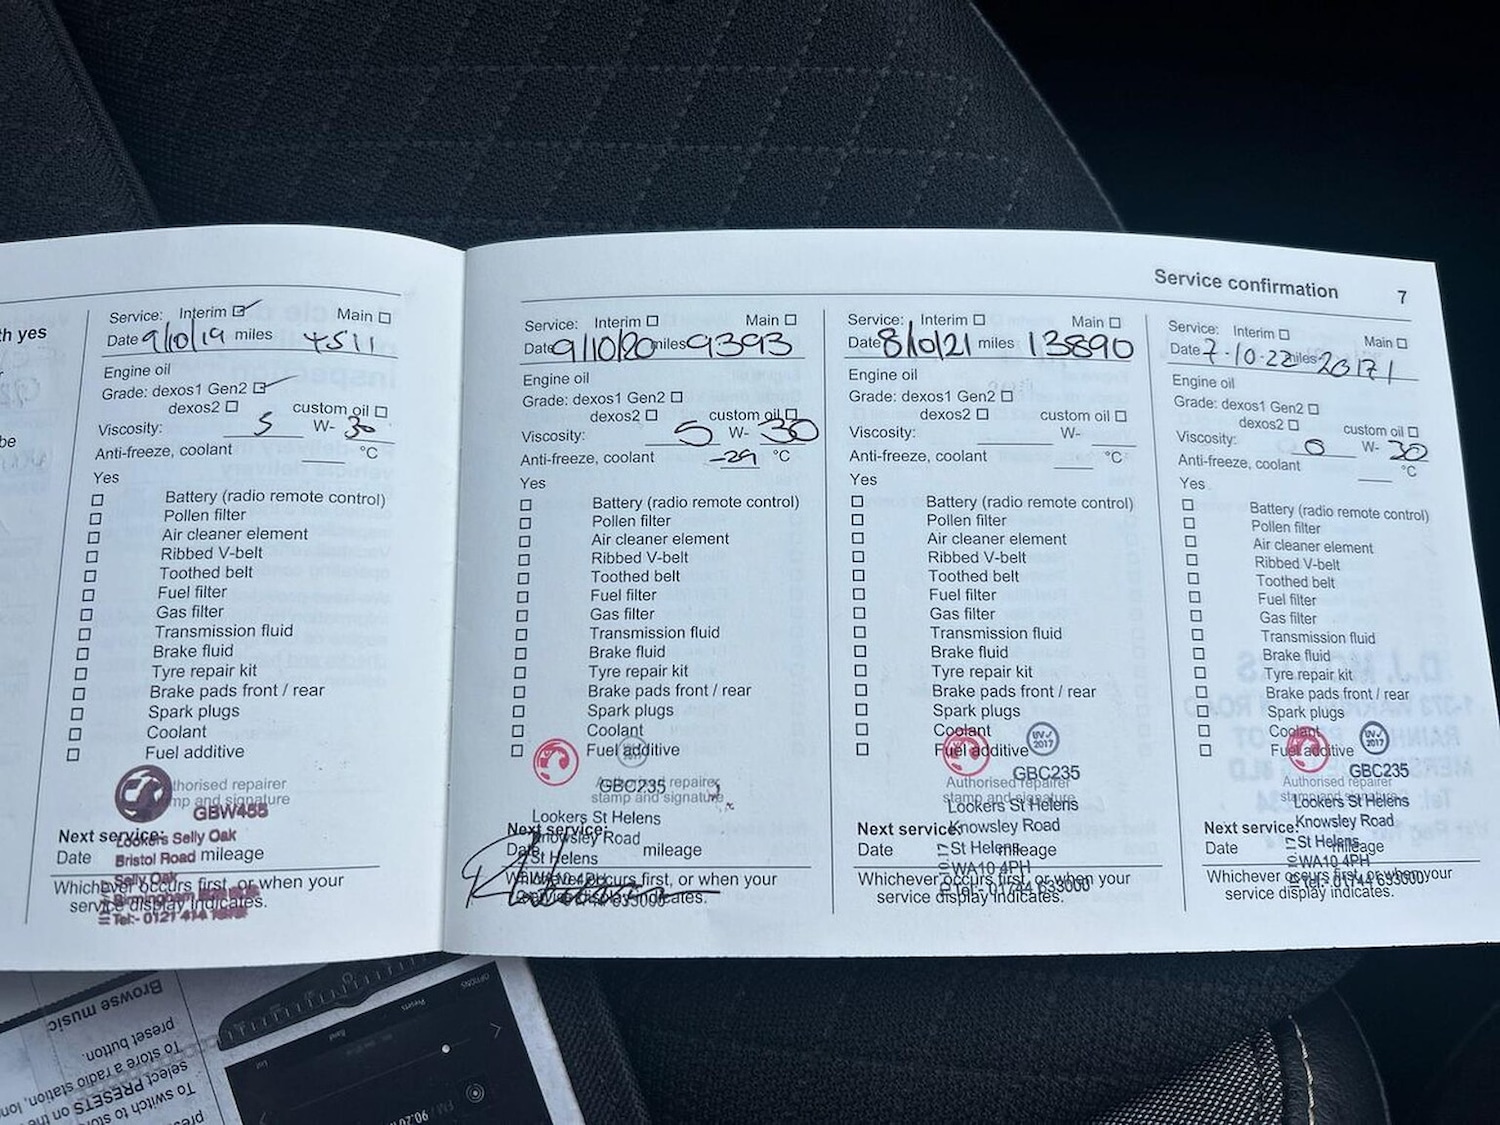 Service confirmation 7
th yes
be
Service: Interim ☑ Main ☐
Date 9/10/19 miles 4511
Engine oil
Grade: dexos1 Gen2 ☑
dexos2 ☐ custom oil ☐
Viscosity: 5 W- 30
Anti-freeze, coolant °C
Yes
☐ Battery (radio remote control)
☐ Pollen filter
☐ Air cleaner element
☐ Ribbed V-belt
☐ Toothed belt
☐ Fuel filter
☐ Gas filter
☐ Transmission fluid
☐ Brake fluid
☐ Tyre repair kit
☐ Brake pads front / rear
☐ Spark plugs
☐ Coolant
☐ Fuel additive
Authorised repairer
stamp and signature
GBW455
Next service:
Lookers Selly Oak
Date mileage
Bristol Road
Selly Oak
Whichever occurs first, or when your
Birmingham
service display indicates.
Tel:- 0121 414
Service: Interim ☐ Main ☐
Date 9/10/20 miles 9393
Engine oil
Grade: dexos1 Gen2 ☐
dexos2 ☐ custom oil ☐
Viscosity: 5 W- 30
Anti-freeze, coolant -29 °C
Yes
☐ Battery (radio remote control)
☐ Pollen filter
☐ Air cleaner element
☐ Ribbed V-belt
☐ Toothed belt
☐ Fuel filter
☐ Gas filter
☐ Transmission fluid
☐ Brake fluid
☐ Tyre repair kit
☐ Brake pads front / rear
☐ Spark plugs
☐ Coolant
☐ Fuel additive
2017
Authorised repairer
GBC235
stamp and signature
Lookers St Helens
Next service:
Knowsley Road
Date mileage
St Helens
WA10 4PH
Whichever occurs first, or when your
service display indicates.
01744 633000
Service: Interim ☐ Main ☐
Date 8/10/21 miles 13890
Engine oil
Grade: dexos1 Gen2 ☐
dexos2 ☐ custom oil ☐
Viscosity: W-
Anti-freeze, coolant °C
Yes
☐ Battery (radio remote control)
☐ Pollen filter
☐ Air cleaner element
☐ Ribbed V-belt
☐ Toothed belt
☐ Fuel filter
☐ Gas filter
☐ Transmission fluid
☐ Brake fluid
☐ Tyre repair kit
☐ Brake pads front / rear
☐ Spark plugs
☐ Coolant
☐ Fuel additive
UV✓
2017
GBC235
Authorised repairer
stamp and signature
Lookers St Helens
Next service:
Knowsley Road
Date mileage
St Helens
WA10 4PH
Whichever occurs first, or when your
Tel: 01744 633000
service display indicates.
Service: Interim ☐ Main ☐
Date 7-10-22 miles 20171
Engine oil
Grade: dexos1 Gen2 ☐
dexos2 ☐ custom oil ☐
Viscosity: 0 W- 30
Anti-freeze, coolant °C
Yes
☐ Battery (radio remote control)
☐ Pollen filter
☐ Air cleaner element
☐ Ribbed V-belt
☐ Toothed belt
☐ Fuel filter
☐ Gas filter
☐ Transmission fluid
☐ Brake fluid
☐ Tyre repair kit
☐ Brake pads front / rear
☐ Spark plugs
☐ Coolant
☐ Fuel additive
UV✓
2017
GBC235
Authorised repairer
stamp and signature
Lookers St Helens
Next service:
Knowsley Road
Date mileage
St Helens
WA10 4PH
Whichever occurs first, or when your
Tel: 01744 633000
service display indicates.
Browse music
preset button.
To store a radio station, lon
select PRESETS on the
To switch to sto
pres
OPTIONS
Presets
Band
List
FM / 90.20